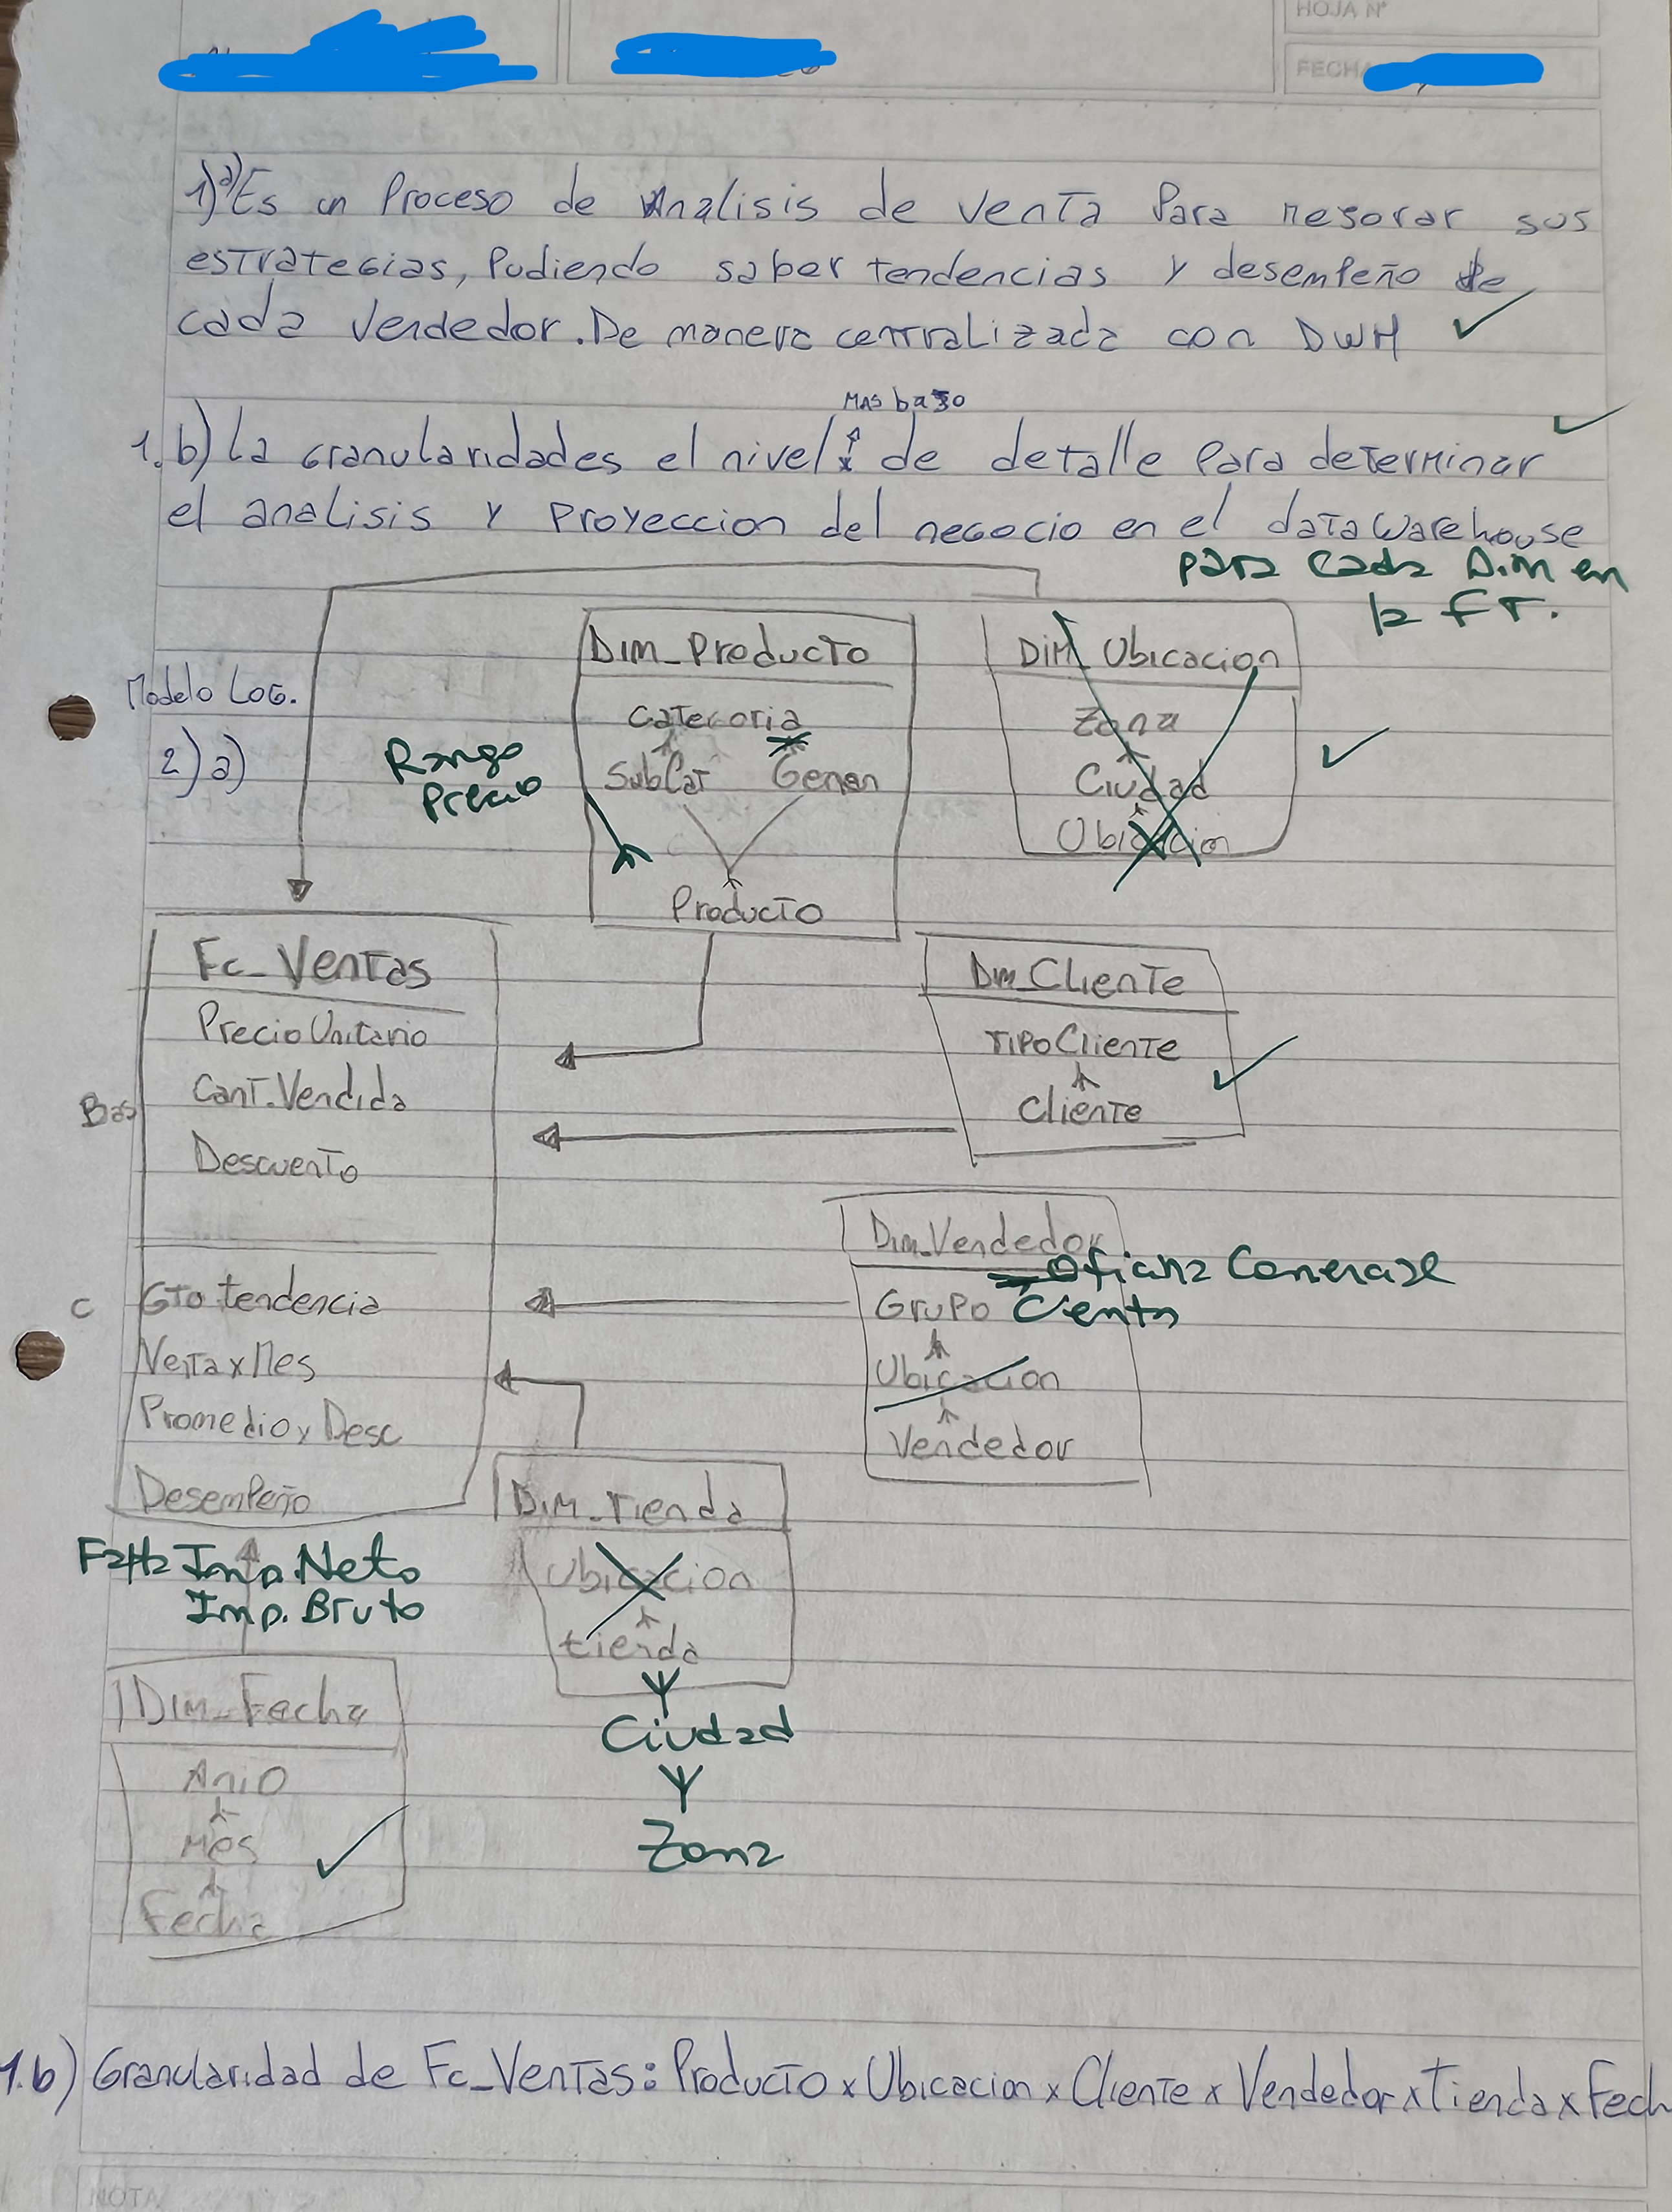 HOJA Nº
FECHA
1)a) Es un Proceso de Analisis de venta Para mejorar sus
estrategias, Pudiendo saber tendencias y desempeño de
cada Vendedor. De manera centralizada con DWH
MAS bajo
1.b) La Granularidades el nivel de detalle Para determinar
el analisis y Proyeccion del negocio en el data Warehouse
para cada Dim en
la FT.
Modelo Log.
2) a)
Dim_Producto
Categoria
SubCat
Rango
Precio
Producto
Dim_Ubicacion
Zona
Ciudad
Ubicacion
Fc_Ventas
Precio Unitario
Cant. Vendida
Descuento
Bas
Dim_Cliente
TipoCliente
Cliente
C
Gto tendencia
Venta x Mes
Promedio y Desc
Desempeño
Falta Imp. Neto
Imp. Bruto
Dim_Vendedor
Oficina Comercial
Grupo
Ubicacion
Vendedor
Dim_Tienda
Ubicacion
tienda
Ciudad
Zona
Dim_Fecha
Anio
Mes
Fecha
1.b) Granularidad de Fc_Ventas: Producto x Ubicacion x Cliente x Vendedor x Tienda x Fech
NOTA